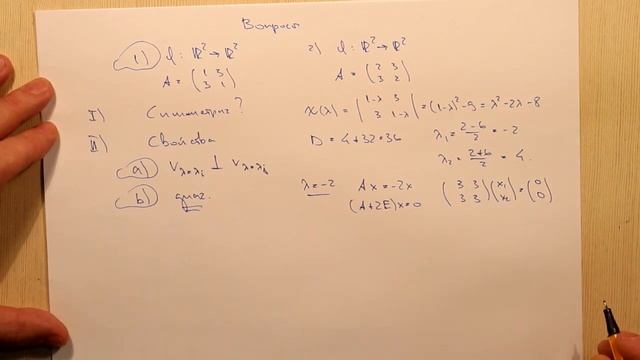 Вопросы
1) φ: ℝ² → ℝ²
A = (1 3; 3 1)
I) Симметрич?
II) Свойства
a) V_{λ=λ_i} ⊥ V_{λ=λ_j}
b) диаг.
2) φ: ℝ² → ℝ²
A = (2 3; 3 2)
χ(λ) = |1-λ 3; 3 1-λ| = (1-λ)² - 9 = λ² - 2λ - 8
D = 4 + 32 = 36
λ₁ = (2-6)/2 = -2
λ₂ = (2+6)/2 = 4.
λ = -2 Ax = -2x (3 3; 3 3)(x₁; x₂) = (0; 0)
(A+2E)x = 0